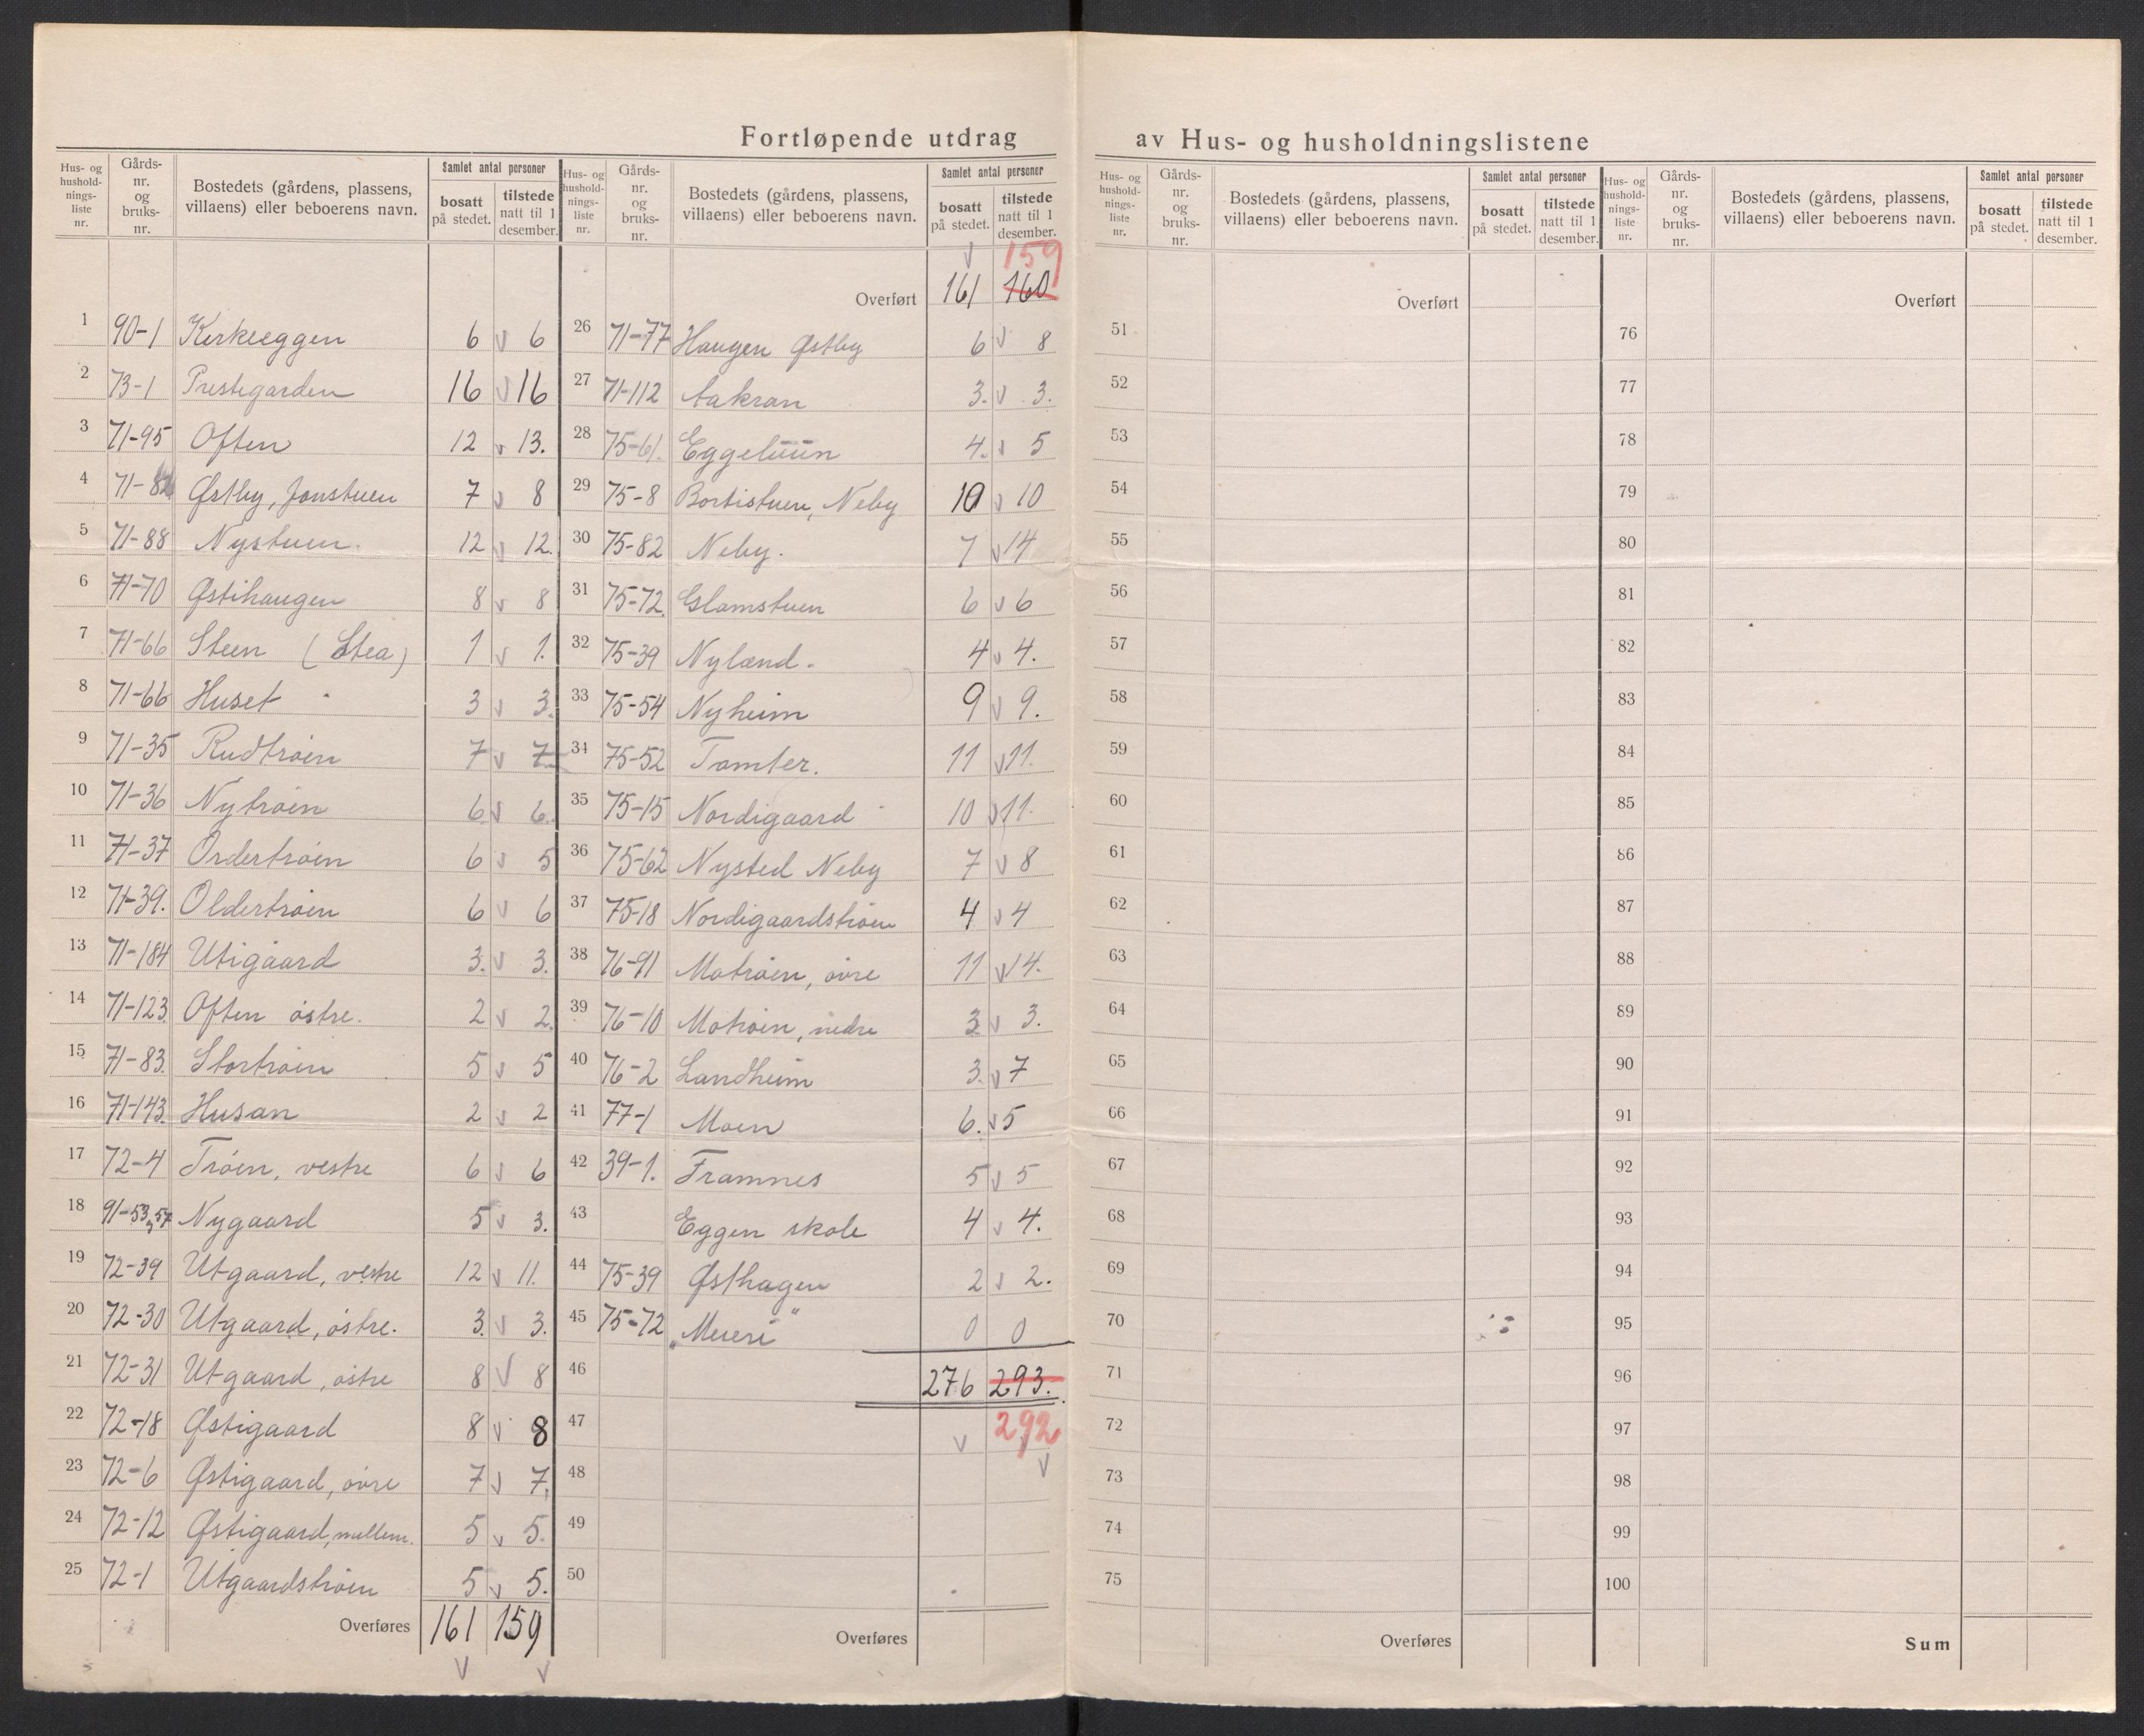 Fortløpende utdrag av Hus- og husholdningslistene
Hus- og hushold-nings-liste nr. | Gårds-nr. og bruks-nr. | Bostedets (gårdens, plassens, villaens) eller beboerens navn. | Samlet antal personer | bosatt på stedet. | tilstede natt til 1 desember.
1 90-1 Kirkeeggen 6 v 6
2 73-1 Prestegarden 16 v 16
3 71-95 Often 12 v 13.
4 71- Østby, Jonstuen 7 v 8
5 71-88 Nystuen. 12 v 12.
6 71-70 Østihaugen 8 v 8
7 71-66 Steen (Stea) 1 v 1.
8 71-66 Huset 3 v 3.
9 71-35 Rudtrøen 7 v 7
10 71-36 Nytrøen 6 v 6.
11 71-37 Ordertrøen 6 v 5
12 71-39. Oldertrøen 6 v 6
13 71-184 Utigaard 3. v 3.
14 71-123. Often østre. 2 v 2.
15 71-83. Stortrøen 5 v 5
16 71-143. Husan 2 v 2
17 72-4 Trøen, vestre 6 v 6
18 91-53, 57 Nygaard 5 v 3.
19 72-39 Utgaard, vestre 12 v 11.
20 72-30 Utgaard, østre. 3. v 3.
21 72-31 Utgaard, østre 8 v 8
22 72-18 Østigaard 8 v 8
23 72-6 Østigaard, øvre 7 v 7.
24 72-12 Østigaard, mellem. 5 v 5.
25 72-1 Utgaardstrøen 5 v 5.
Overføres 161 159
v v
Hus- og hushold-nings-liste nr. | Gårds-nr. og bruks-nr. | Bostedets (gårdens, plassens, villaens) eller beboerens navn. | Samlet antal personer | bosatt på stedet. | tilstede natt til 1 desember.
v 159
Overført 161 160
26 71-77 Haugen Østby 6 v 8
27 71-112 Aakran 3. v 3.
28 75-61. Eggetuun 4. v 5
29 75-8 Bortistuen, Neby 10 v 10
30 75-82 Neby. 7 v 14
31 75-72. Glamstuen 6 v 6
32 75-39 Nyland. 4 v 4.
33 75-54 Nyheim 9 v 9.
34 75-52 Tomter. 11 v 11.
35 75-15 Nordigaard 10 v 11.
36 75-62 Nysted Neby 7 v 8
37 75-18 Nordigaardstrøen 4 v 4
38 76-91 Motrøen, øvre 11 v 14.
39 76-10 Motrøen, nedre 3 v 3.
40 76-2 Landheim 3. v 7
41 77-1 Moen 6. v 5
42 39-1. Framnes 5 v 5
43 Eggen skole 4 v 4.
44 75-39 Østhagen 2 v 2.
45 75-72 „Meieri" 0 0
46 276 293.
47 v 292
48 v
49
50
Overføres
Hus- og hushold-nings-liste nr. | Gårds-nr. og bruks-nr. | Bostedets (gårdens, plassens, villaens) eller beboerens navn. | Samlet antal personer | bosatt på stedet. | tilstede natt til 1 desember.
Overført
51
52
53
54
55
56
57
58
59
60
61
62
63
64
65
66
67
68
69
70
71
72
73
74
75
Overføres
Hus- og hushold-nings-liste nr. | Gårds-nr. og bruks-nr. | Bostedets (gårdens, plassens, villaens) eller beboerens navn. | Samlet antal personer | bosatt på stedet. | tilstede natt til 1 desember.
Overført
76
77
78
79
80
81
82
83
84
85
86
87
88
89
90
91
92
93
94
95
96
97
98
99
100
Sum